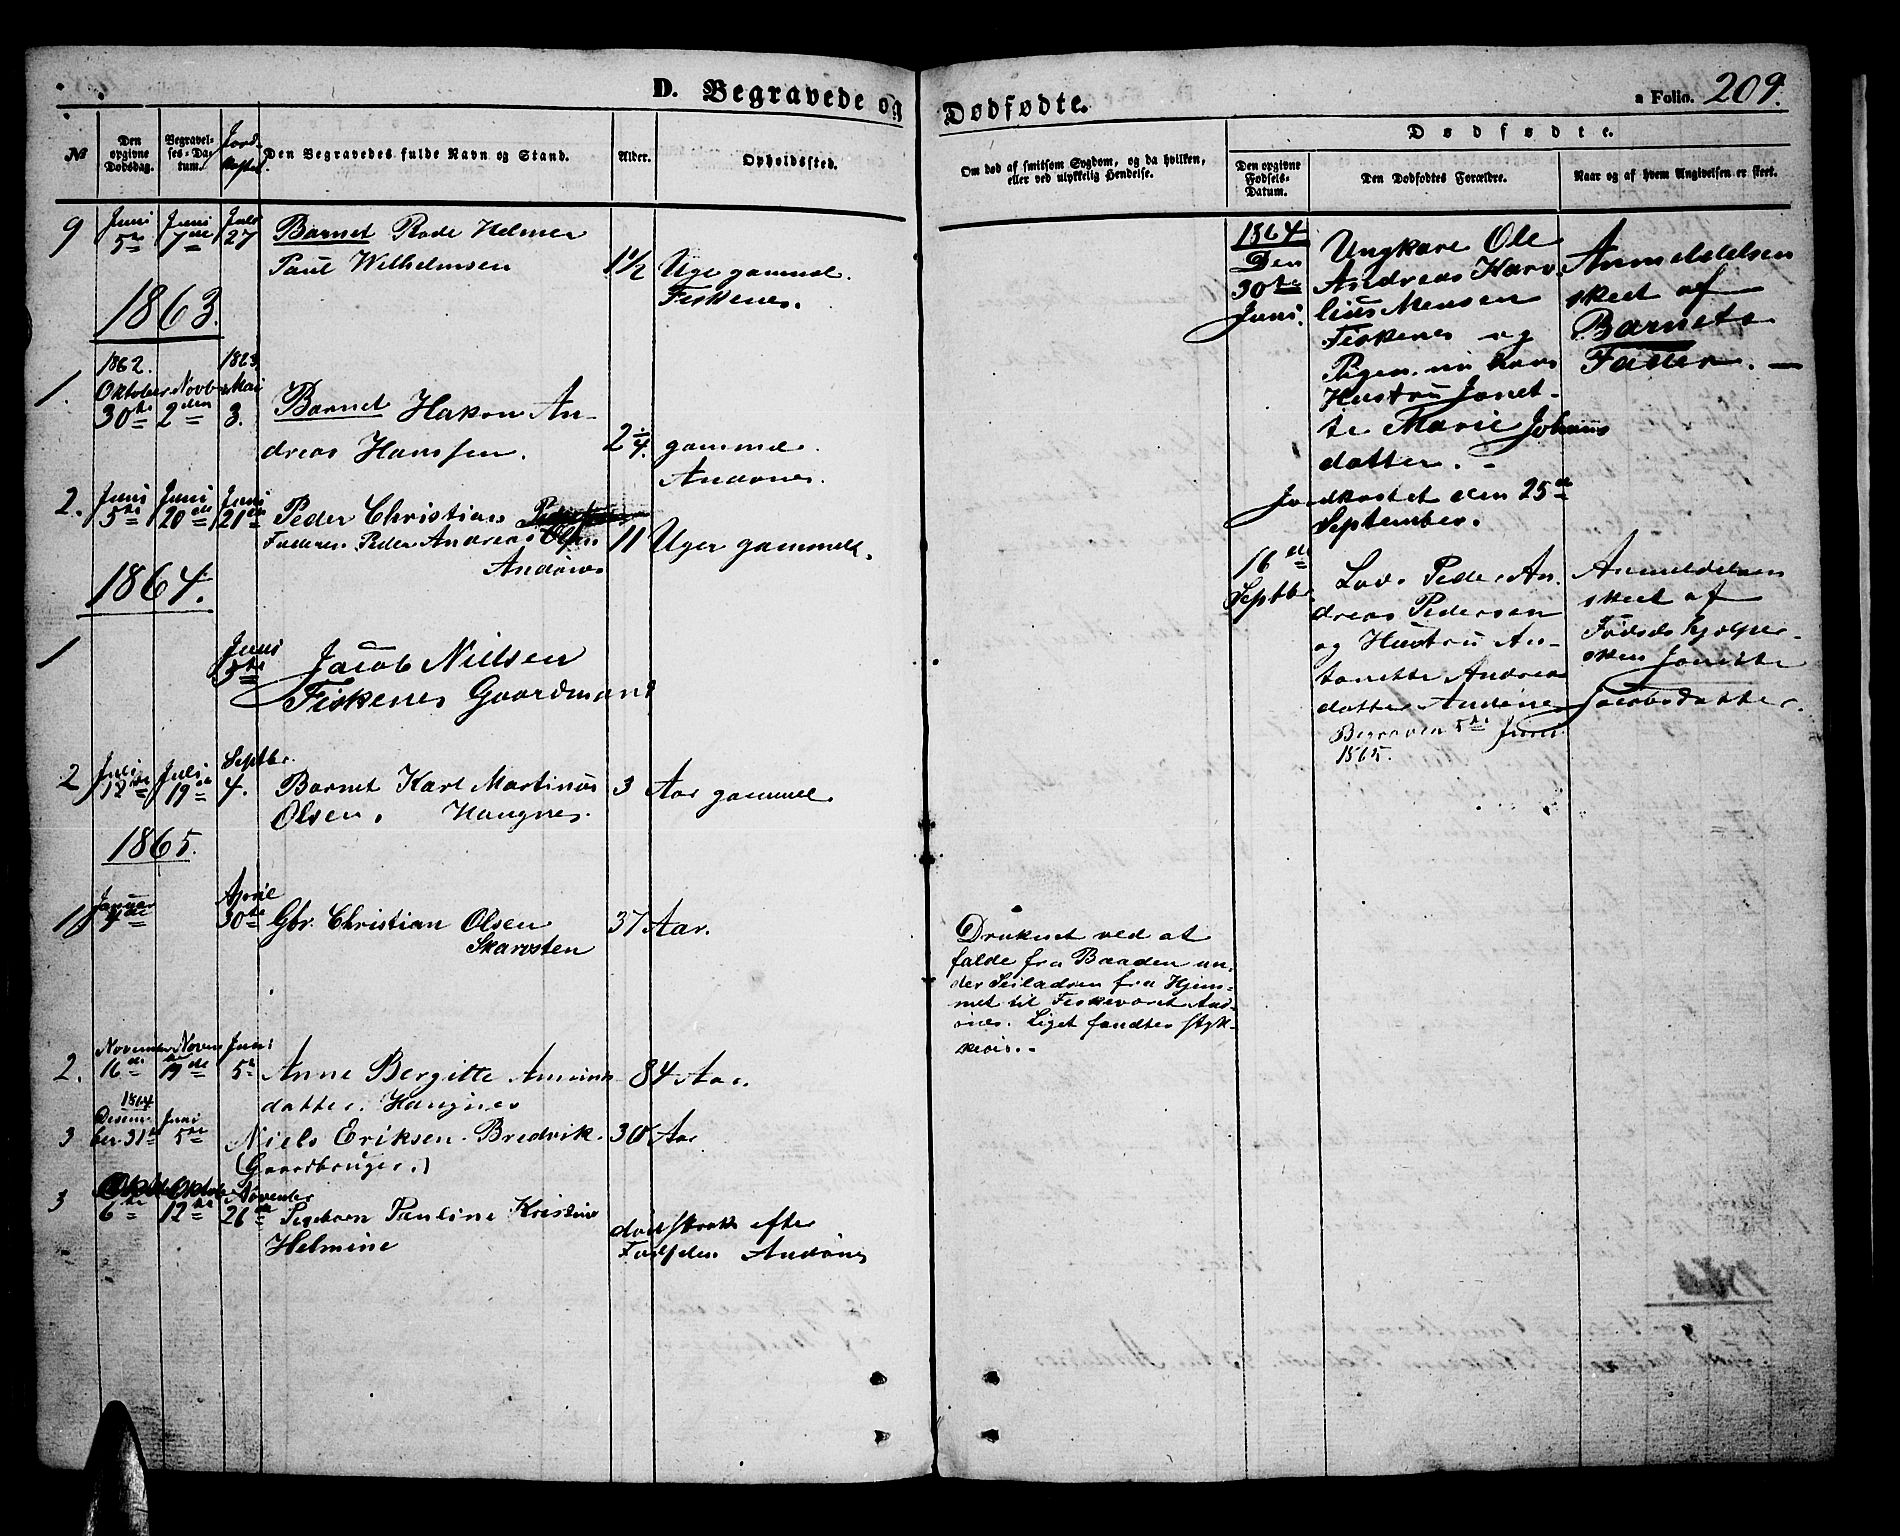 D. Begravede og Dødfødte.
a Folio. 209.
№
Den opgivne Dødsdag.
Begravelses-Datum.
Jordkastel.
Den Begravedes fulde Navn og Stand.
Alder.
Opholdssted.
Om død af smitsom Sygdom, og da hvilken,
eller ved ulykkelig Hændelse.
Dødfødte.
Den opgivne Fødsels-Datum.
Den Dødfødtes Forældre.
Naar og af hvem Angivelsen er skeet.
9 Juni 5te Juni 7de 27 Barnet Helmer
Paul Wilhelmsen 1½ Uge gammel.
Fiskenes.
1863.
1862. 1863
1. Oktober 30te Novbr 2den Mai 3. Barnet Hakon An-
dreas Hanssen. 2¼ gammel.
Andønes.
2. Juni 5te Juni 20 Juni 21 Peder Christian
Faderen Peder Andreas Olsen 11 Uger gammel.
Andønes
1864.
1 Juni 5te Jacob Nielsen
Fiskenes Gaardmand
2 Juli 12te Juli 19 Septbr. 4. Barnet Karl Martinus 3 Aar gammel
Olsen. Hangnes.
1865.
1 Januar April 30te Gbr. Christian Olsen 37 Aar.
Skarsten
2. November 16de Novem 19de Juni 5te Anne Bergitte 84 Aar.
datter. Hangnes
1864
3 Desember 31te Juni 5te Niels Eriksen. Bredvik. Aar
(Gaardbruger.)
3 6te Oktob 12te November 26de Pauline Kristine
Helmine død strax efter
Fødselen Andønes
Druknet ved at
falde fra Baaden un-
der Seiladsen fra Hjem-
met til Fiskeværet And-
enes. Liget fandtes styk-
kevis.
1864
Den
30te
Juni.
Ungkare Ole
Andreas Karo-
lius Mensen
Fiskenes og
Pigen nu hans
Hustru Janet-
te Marie Johannes
datter. -
Jordkastet den 25de
September.
Anmeldelsen
skeet af
Barnets
Fader. —
16de
Septbr.
Peder An-
dreas Pedersen
og Hustru An-
tonette Andreas
datter Andønes
Begraven 5te Juni
1865.
Anmeldelsen
skeet af
Fødselshjælper-
sken Janette
Jacobsdatter.